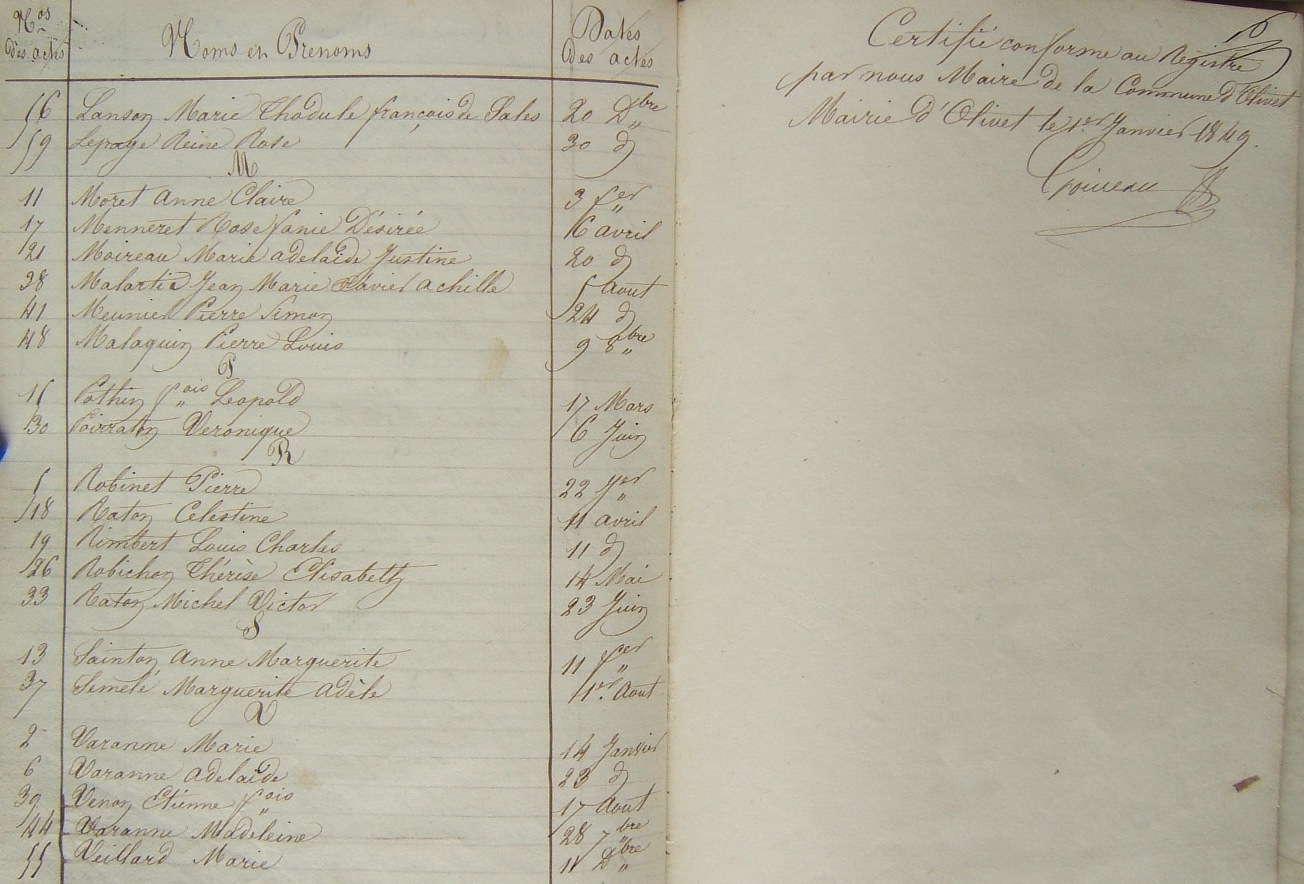 Nos des actes Noms et Prenoms Dates des actes
56 Lanson Marie Thodule françois de Sales 20 Dbre
59 Lepage Reine Rose 30 d
M
11 Moret Anne Claire 3 fer
17 Menneret Rose fanie Désirée 6 avril
21 Moireau Marie adelaïde Justine 20 d
38 Malartic Jean Marie Xavier achille 5 Aout
41 Meunier Pierre Simon 24 d
48 Malaquin Pierre Louis 9 8bre
P
15 Pothin fois Leopold 17 Mars
30 Poirraton Veronique 6 Juin
R
5 Robinet Pierre 22 Jer
18 Raton Celestine 11 avril
19 Rimbert Louis Charles 11 d
26 Robichon Thérèse Elisabeth 14 Mai
33 Raton Michel Victor 23 Juin
S
13 Sainton Anne Marguerite 11 fer
37 Semelé Marguerite adèle 1er Aout
V
2 Varanne Marie 14 Janvier
6 Varanne adelaïde 23 d
39 Venon Etienne fois 17 Aout
44 Varanne Madeleine 28 7bre
55 Veillard Marie 11 Dbre
Certifié conforme au Registre
par nous Maire de la Commune d'Olivet
Mairie d'Olivet le 1er Janvier 1849.